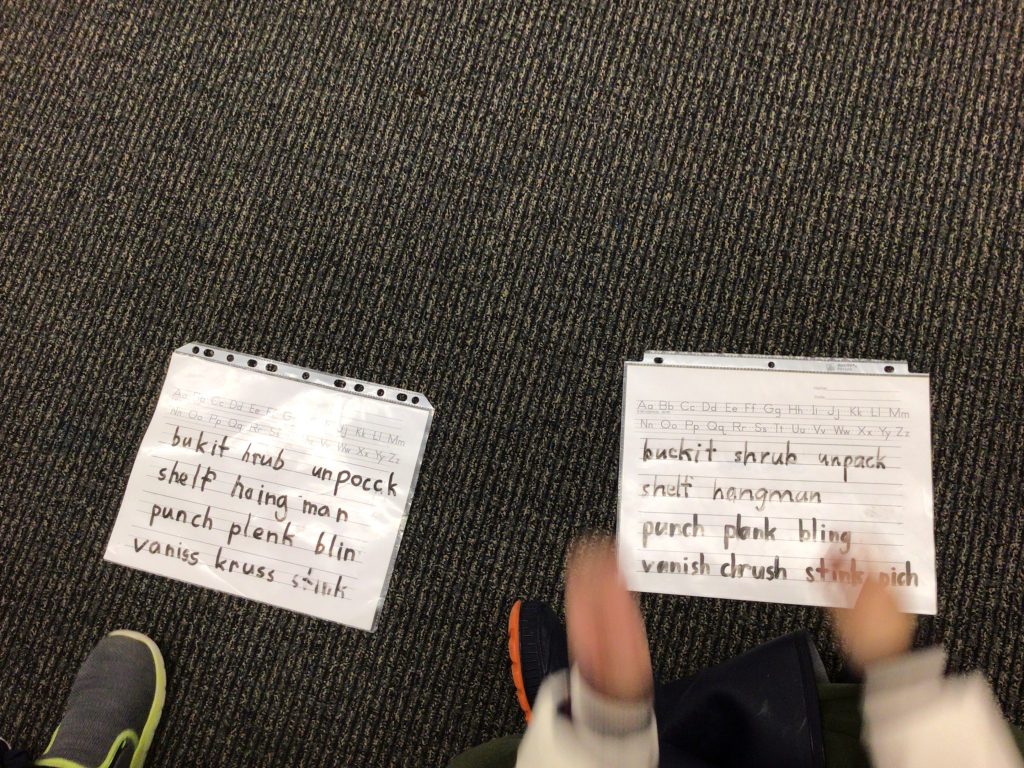 Aa Bb Cc Dd Ee Ff G Jj Kk Ll Mm
Nn Oo Pp Qq Rr Ss Vv Ww Xx Yy Zz
bukit hrub unpocck
shelf haing man
punch plenk blin
vaniss kruss stink
Aa Bb Cc Dd Ee Ff Gg Hh Ii Jj Kk Ll Mm
Nn Oo Pp Qq Rr Ss Tt Uu Vv Ww Xx Yy Zz
buckit shrub unpack
shelf hangman
punch plank bling
vanish chrush stink pich